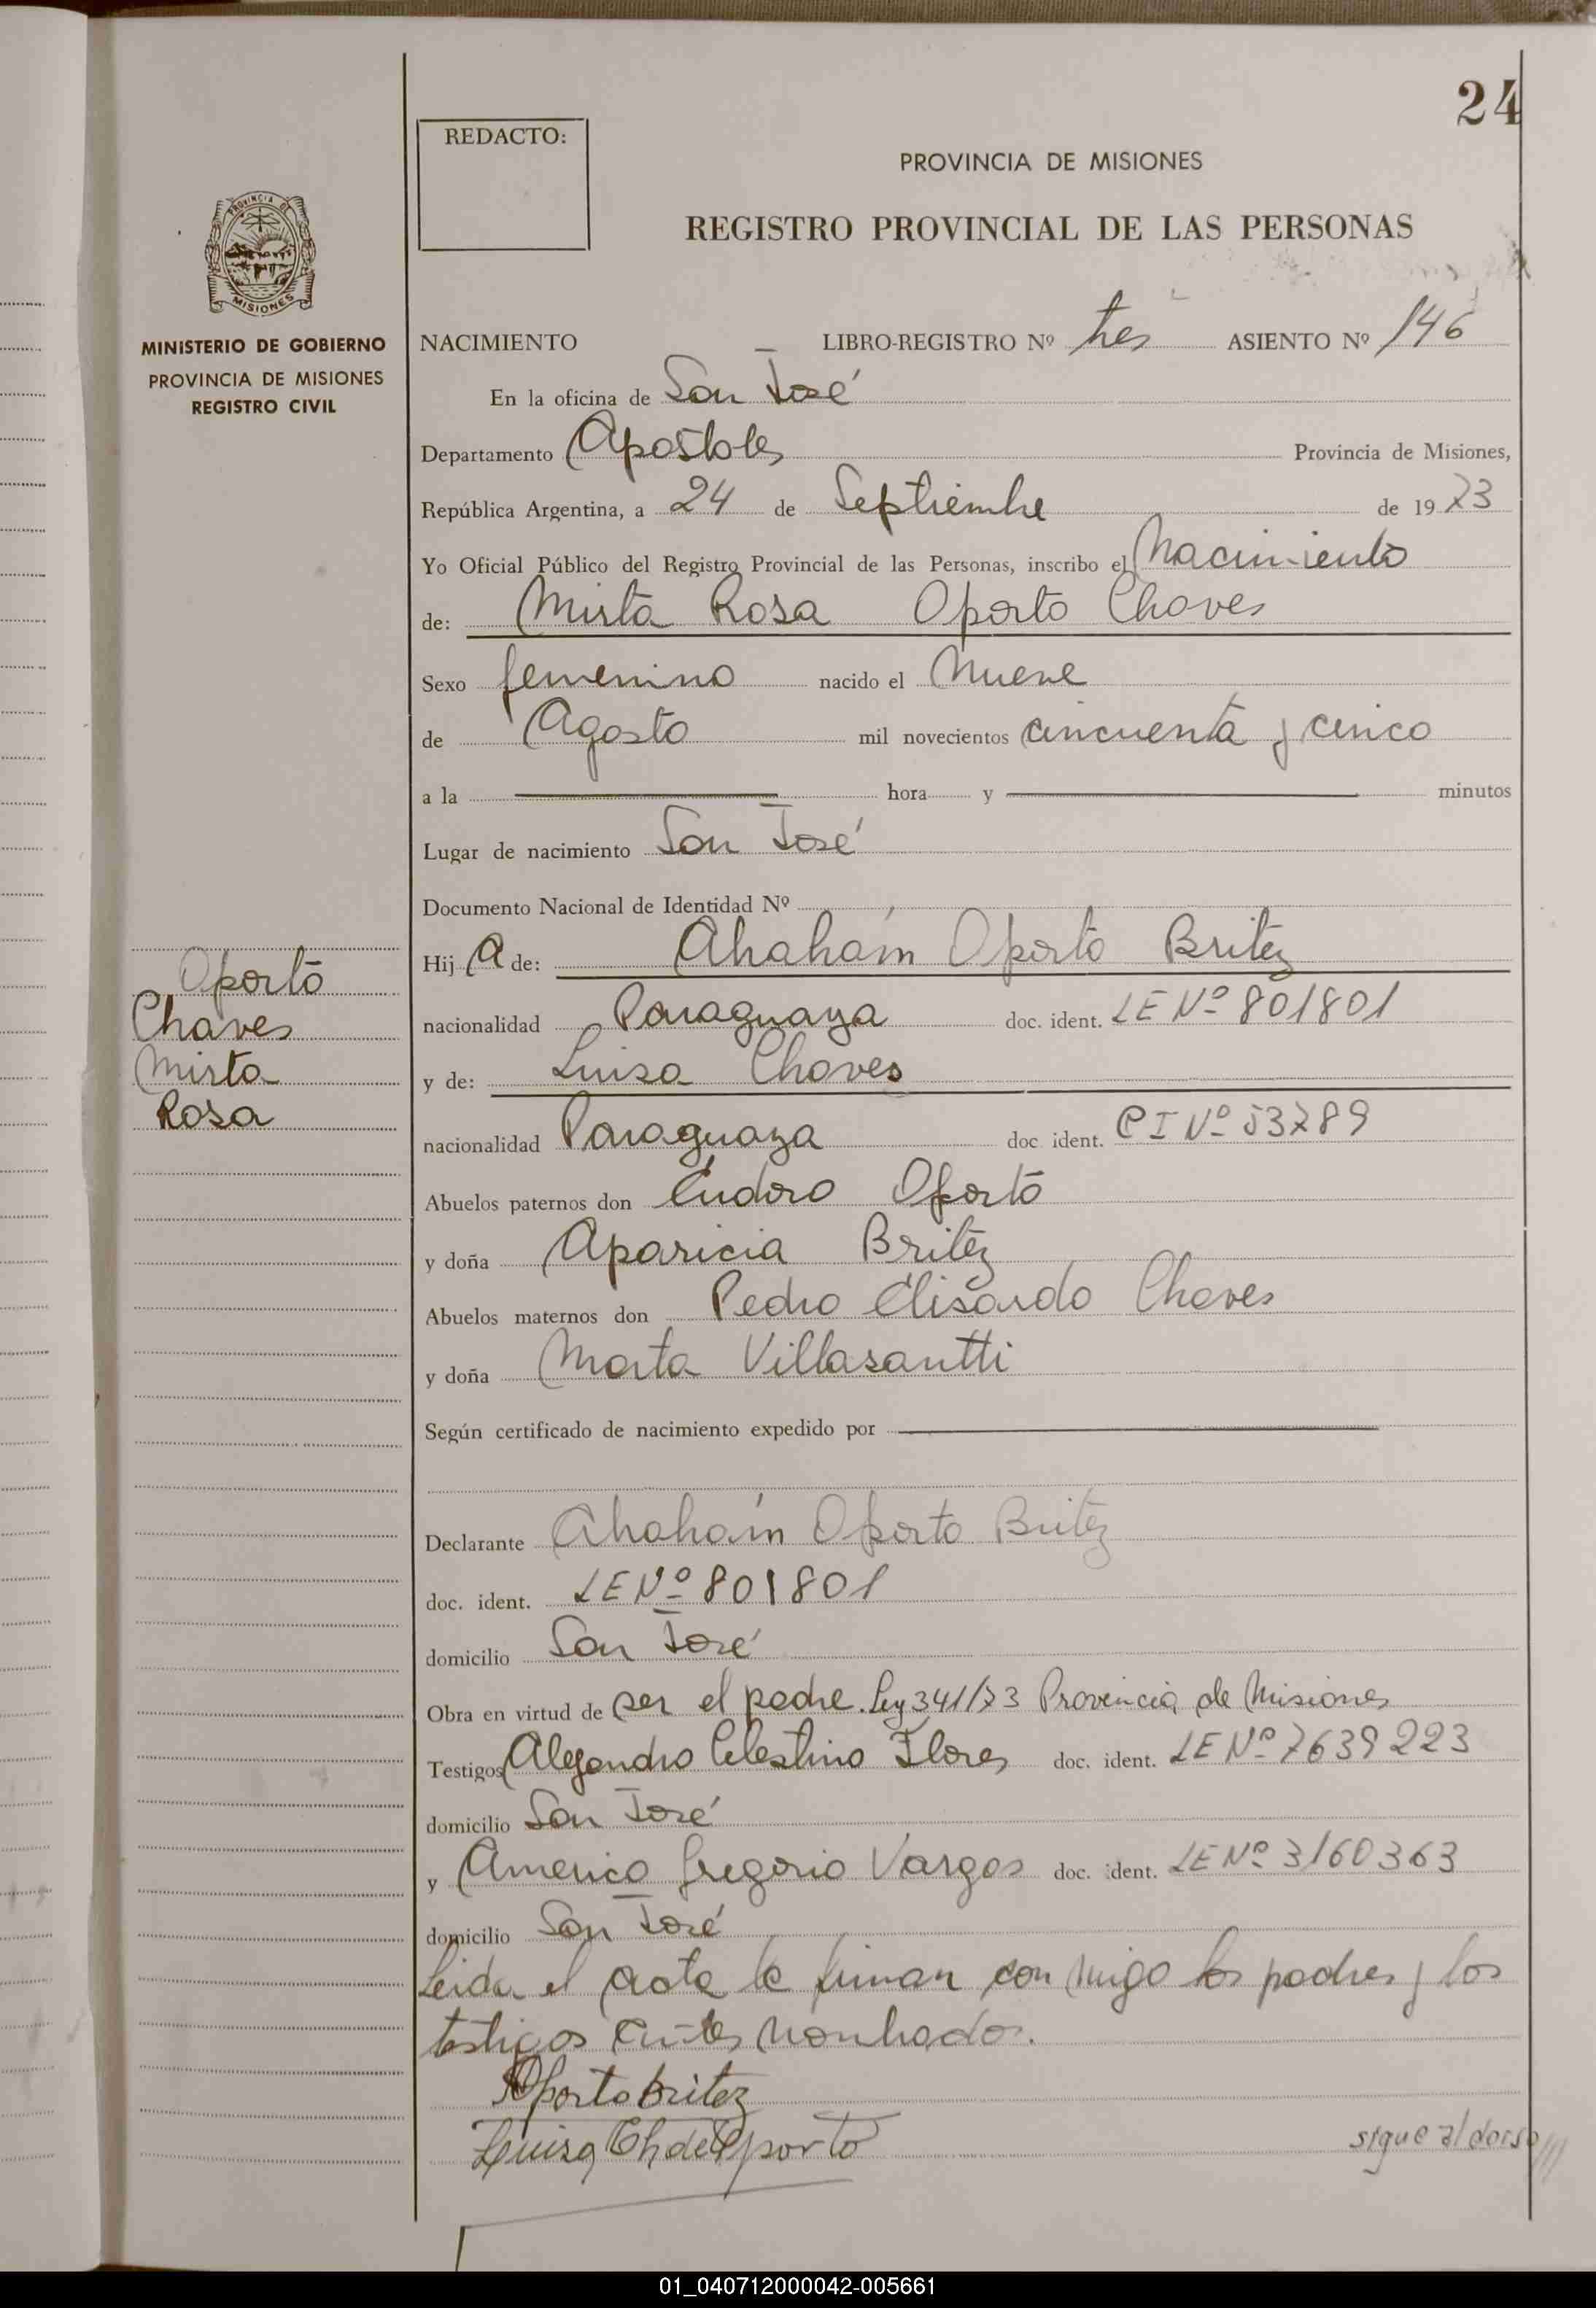 24
REDACTO:
PROVINCIA DE MISIONES
REGISTRO PROVINCIAL DE LAS PERSONAS
PROVINCIA DE
MISIONES
MINISTERIO DE GOBIERNO
PROVINCIA DE MISIONES
REGISTRO CIVIL
NACIMIENTO LIBRO-REGISTRO Nº tres ASIENTO Nº 146
En la oficina de San José
Departamento Apostoles Provincia de Misiones,
República Argentina, a 24 de Septiembre de 1973
Yo Oficial Público del Registro Provincial de las Personas, inscribo el Nacimiento
de: Mirta Rosa Oporto Chaves
Sexo femenino nacido el Nueve
de Agosto mil novecientos cincuenta y cinco
a la hora y minutos
Lugar de nacimiento San José
Documento Nacional de Identidad Nº
Hij a de: Abrahám Oporto Britez
nacionalidad Paraguaya doc. ident. LE Nº 801801
y de: Luisa Chaves
nacionalidad Paraguaya doc ident. CI Nº 53789
Abuelos paternos don Eudoro Oporto
y doña Aparicia Britez
Abuelos maternos don Pedro Elisardo Chaves
y doña Marta Villasantti
Según certificado de nacimiento expedido por
Declarante Abrahám Oporto Britez
doc. ident. LE Nº 801801
domicilio San José
Obra en virtud de ser el padre. Ley 341/73 Provincia de Misiones
Testigos Alejandro Celestino Flores doc. ident. LE Nº 7639223
domicilio San José
y Americo Gregorio Vargas doc. ident. LE Nº 3160363
domicilio San José
Leida el acta la firman con migo los padres y los
testigos antes nombrados.
Oporto Britez
Luisa Ch de Oporto
sigue al dorso ///
Oporto
Chaves
Mirta
Rosa
01_040712000042-005661